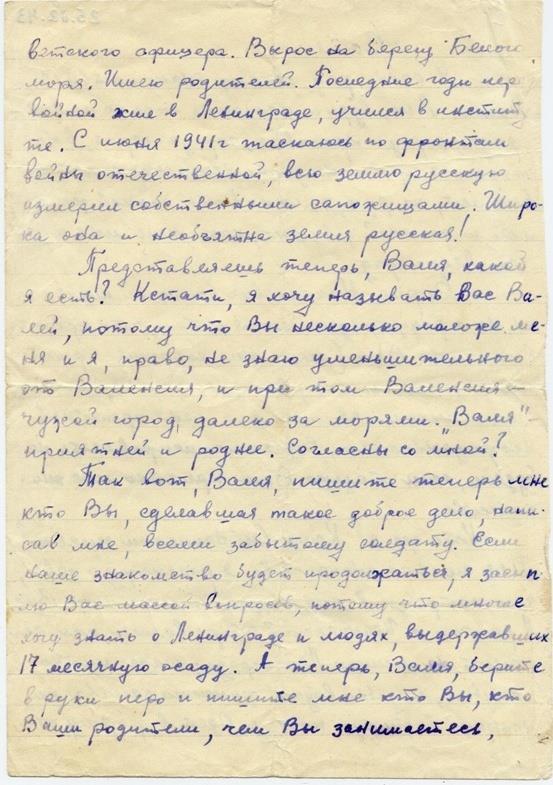 25.02.43
ветского офицера. Вырос на берегу Белого
моря. Имею родителей. Последние годы пер
войной жил в Ленинграде, учился в институ
те. С июня 1941г таскаюсь по фронтам
войны отечественной, всю землю русскую
измерил собственными сапожищами. Широ-
ка она и необъятна земля русская!
Представляешь теперь, Валя, какой
я есть? Кстати, я хочу называть Вас Ва-
лей, потому что Вы несколько моложе ме-
ня и я, право, не знаю уменьшительного
от Валенсия, и при том Валенсия —
чужой город, далеко за морями. „Валя" —
приятней и роднее. Согласны со мной?
Так вот, Валя, пишите теперь мне
кто Вы, сделавшая такое доброе дело, напи-
сав мне, всеми забытому солдату. Если
наше знакомство будет продолжаться, я засып-
лю Вас массой вопросов, потому что многое
хочу знать о Ленинграде и людях, выдержавших
17 месячную осаду. А теперь, Валя, берите
в руки перо и пишите мне кто Вы, кто
Ваши родители, чем Вы занимаетесь,